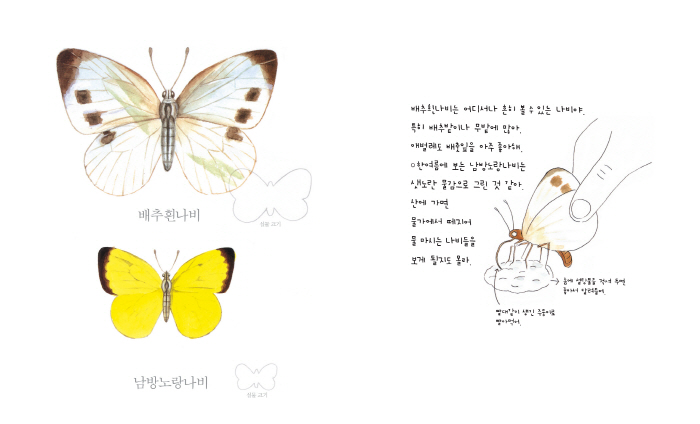 배추흰나비
실물 크기
남방노랑나비
실물 크기
배추흰나비는 어디서나 흔히 볼 수 있는 나비야.
특히 배추밭이나 무밭에 많아.
애벌레도 배춧잎을 아주 좋아해.
한여름에 보는 남방노랑나비는
샛노란 물감으로 그린 것 같아.
산에 가면
물가에서 떼지어
물 마시는 나비들을
보게 될지도 몰라.
솜에 설탕물을 적셔 주면
빨대같이 생긴 주둥이로
빨아먹어.